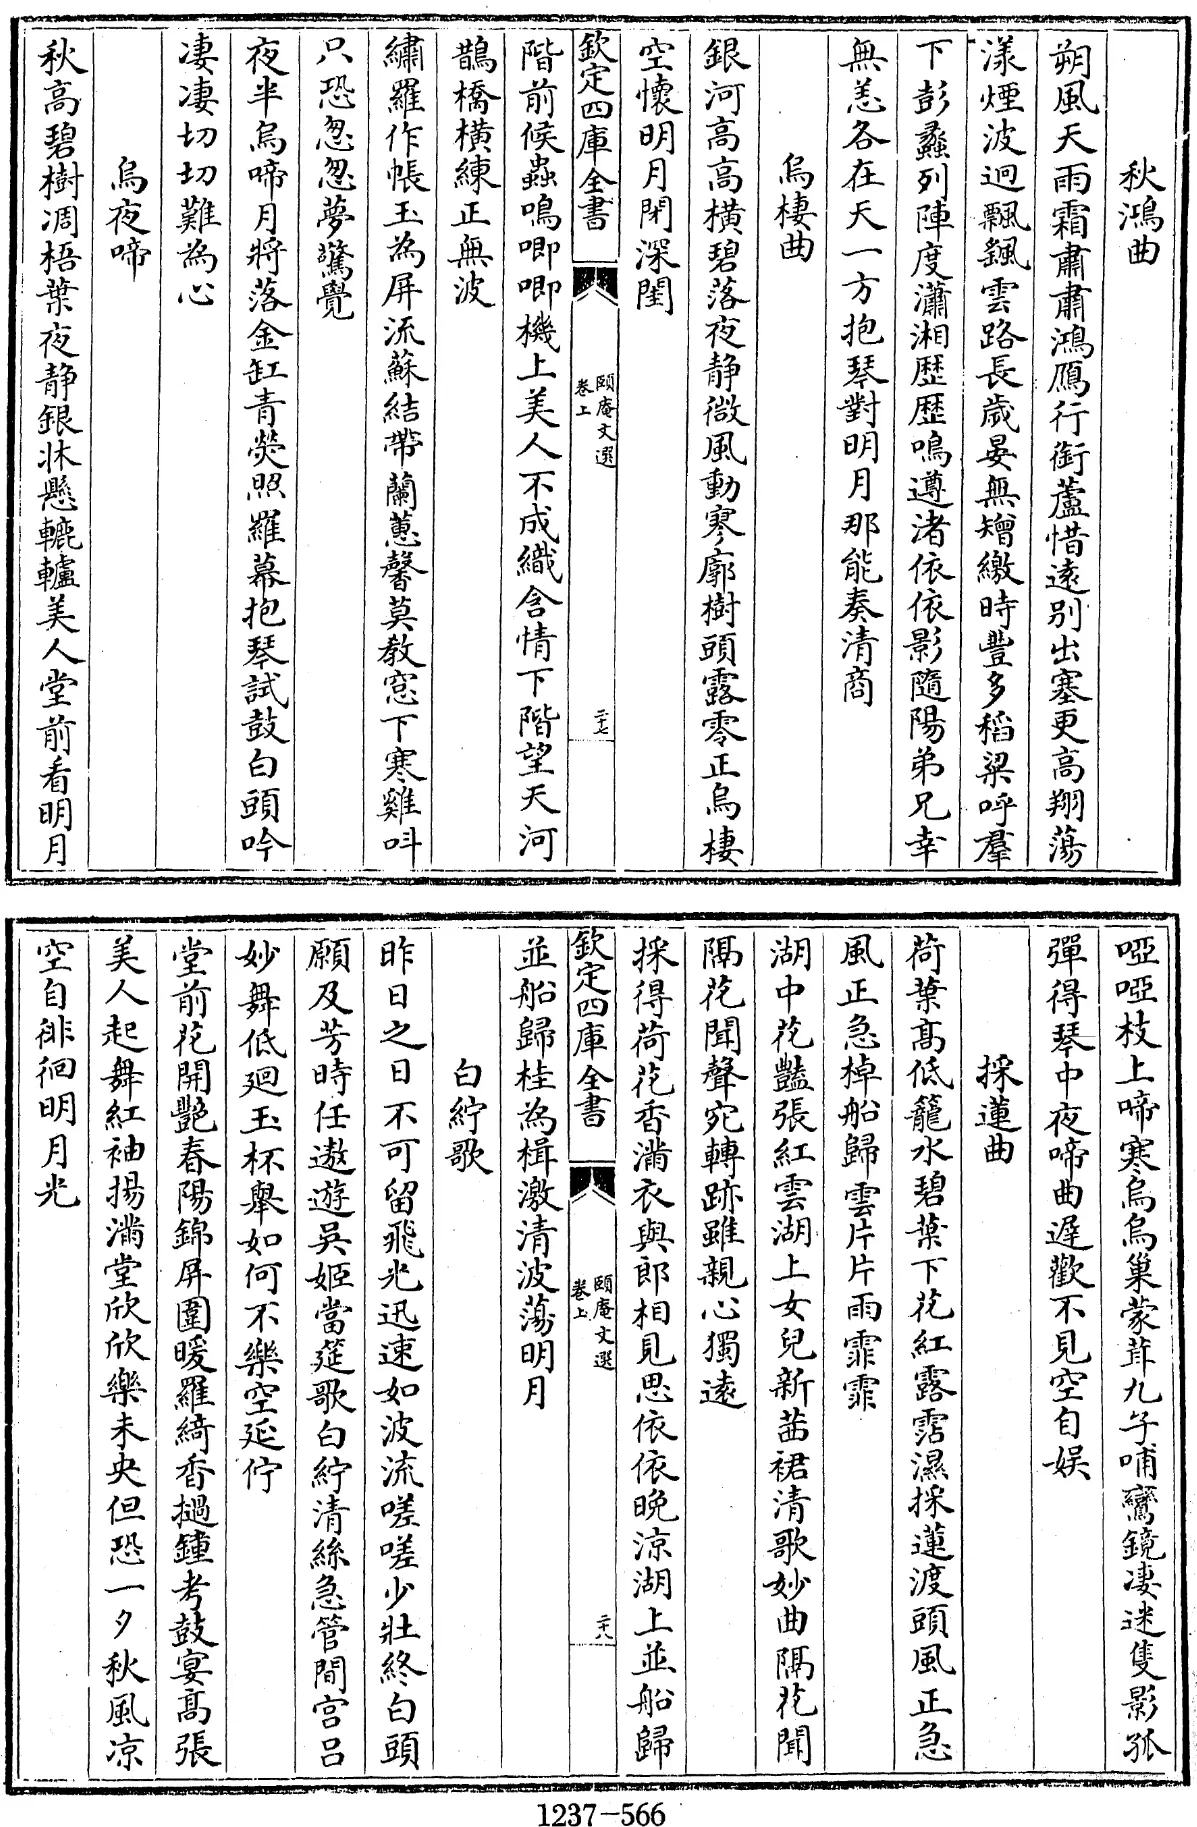 秋鴻曲
朔風天雨霜肅肅鴻鴈行銜蘆惜遠别出塞更高翔蕩
漾煙波迥飄飖雲路長歲晏無矰繳時豐多稻粱呼羣
下彭蠡列陣度瀟湘歴歴鳴遵渚依依影隨陽弟兄幸
無恙各在天一方抱琴對明月那能奏清商
烏棲曲
銀河高高横碧落夜静微風動寥廓樹頭露零正烏棲
空懷明月閉深閨
欽定四庫全書
頤庵文選
卷上
二十七
階前候蟲鳴唧唧機上美人不成織含情下階望天河
鵲橋横練正無波
繡羅作帳玉為屏流蘇結帶蘭蕙馨莫教窓下寒雞叫
只恐怱怱夢驚覺
夜半烏啼月將落金缸青熒照羅幕抱琴試鼓白頭吟
凄凄切切難為心
烏夜啼
秋高碧樹凋梧葉夜静銀牀懸轆轤美人堂前看明月
啞啞枝上啼寒烏烏巢蒙茸九子哺鸞鏡凄迷隻影孤
彈得琴中夜啼曲遲歡不見空自娱
採蓮曲
荷葉髙低籠水碧葉下花紅露霑濕採蓮渡頭風正急
風正急棹船歸雲片片雨霏霏
湖中花豔張紅雲湖上女兒新茜裙清歌妙曲隔花聞
隔花聞聲宛轉跡雖親心獨遠
採得荷花香滿衣與郎相見思依依晚凉湖上並船歸
欽定四庫全書
頤庵文選
卷上
二十八
並船歸桂為楫激清波蕩明月
白紵歌
昨日之日不可留飛光迅速如波流嗟嗟少壯終白頭
願及芳時任遨遊吳姬當筵歌白紵清絲急管間宫吕
妙舞低廻玉杯舉如何不樂空延佇
堂前花開艷春陽錦屏圍暖羅綺香撾鍾考鼓宴髙張
美人起舞紅袖揚滿堂欣欣樂未央但恐一夕秋風凉
空自徘徊明月光
1237-566